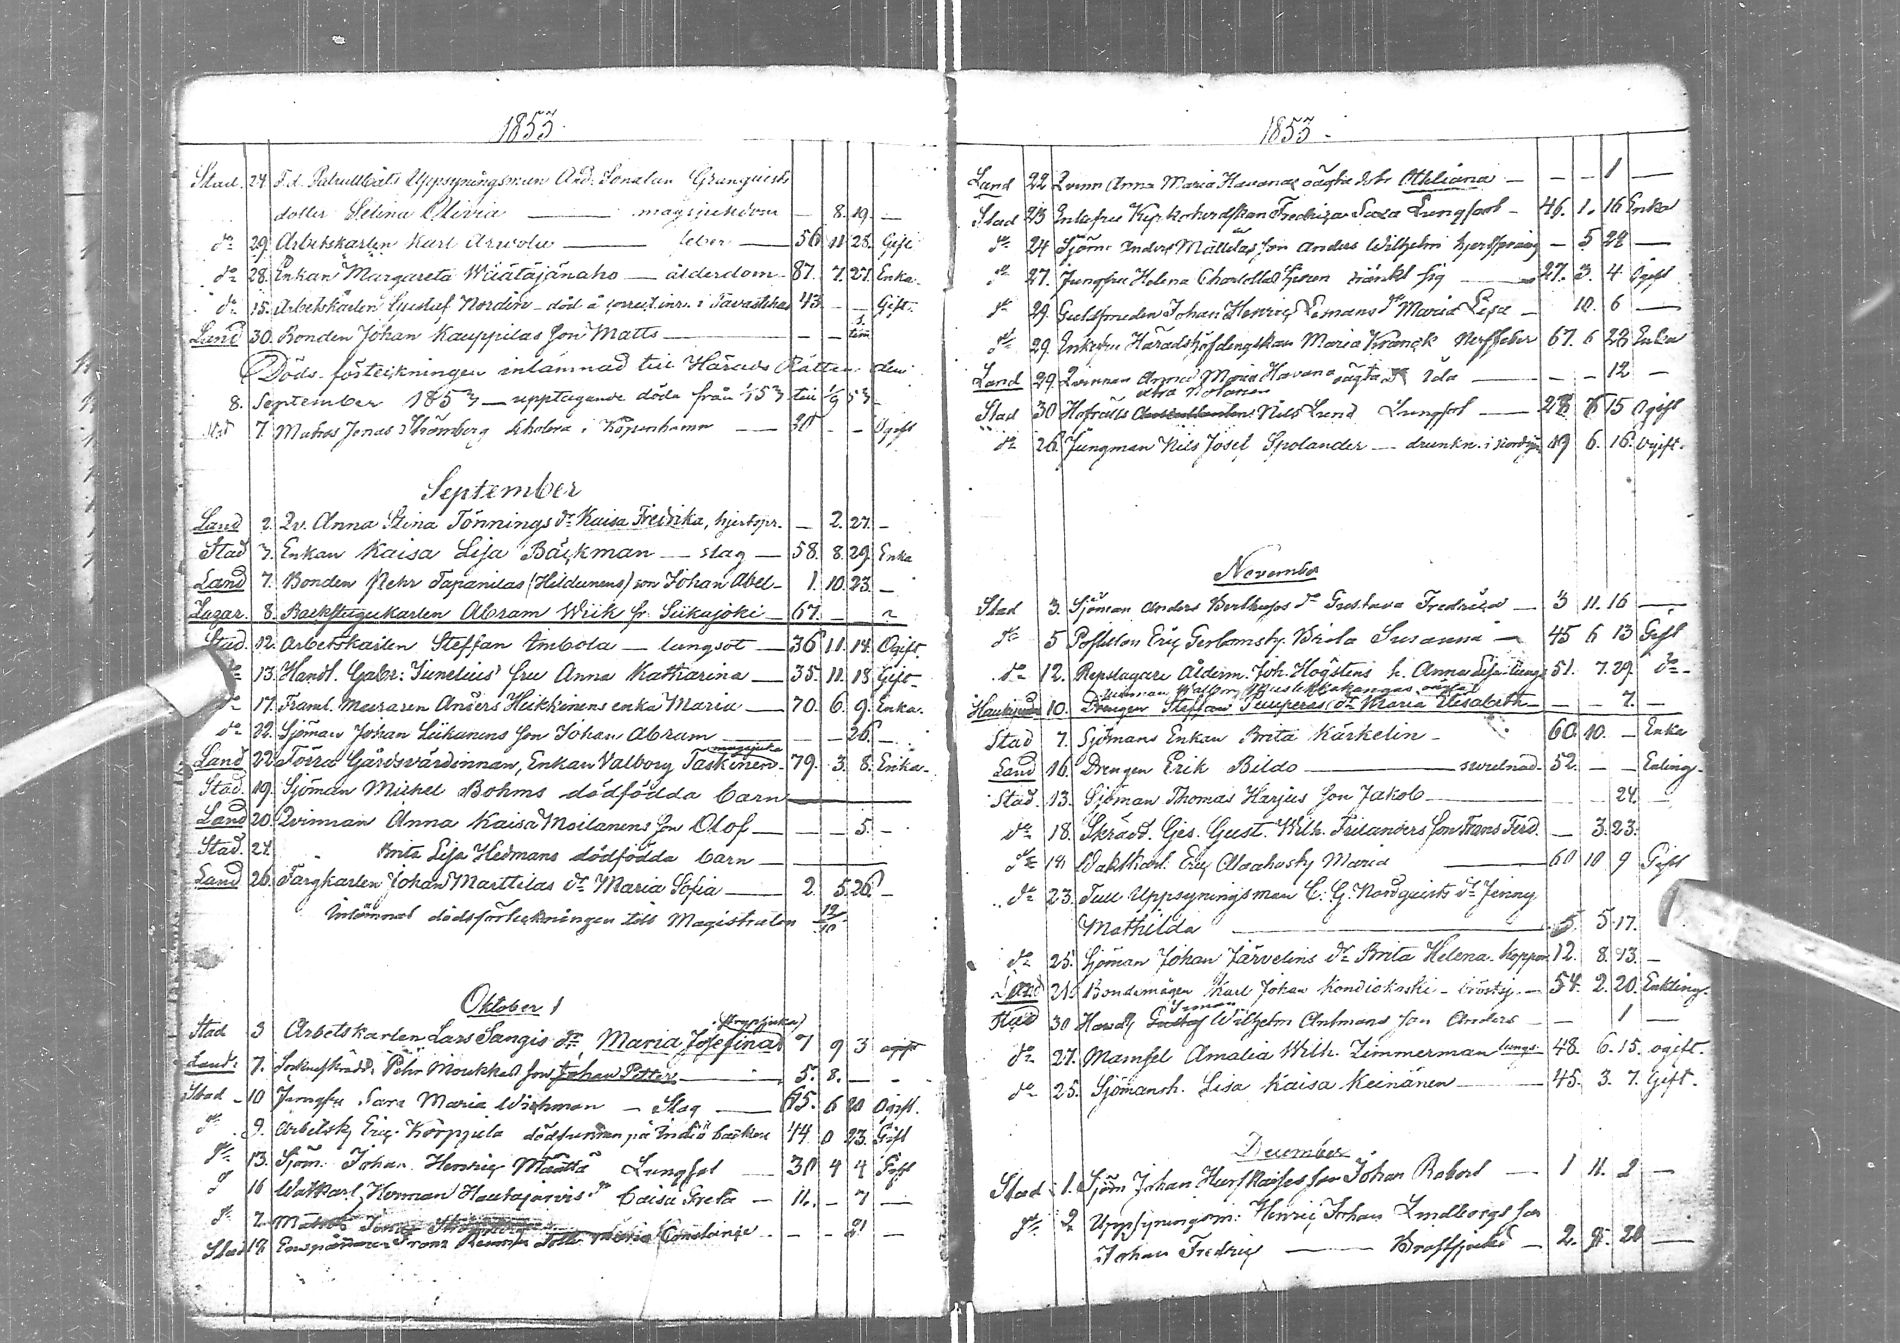 1853.
Stad. 24 F.d. Patrullbåts Uppsyningsman And. Jonatan Granquists
dotter Selina Olivia — magsjukdom — 8. 19. —
do 29. Arbetskarlen Karl Arvola — leber — 56 11 28. Gift
do 28. Enkan Margareta Wäätäjänaho — ålderdom — 87. 7. 27. Enka.
do 15. Arbetskarlen Gustaf Nordin — död å correct.inr. i Tavastehus 43 — — Gift.
Land 30. Bonden Johan Kauppilas son Matts — — — 1. tim
Döds-förteckningen inlämnad till Härads Rätten den
8. September 1853 — upptagande döda från 1/5 53 till 1/9 53 —
Stad 7. Matros Jonas Strömberg kholera i Köpenhamn — 20 — — Ogift
September
Land 2. Qv. Anna Stina Tönnings dr Kaisa Fredrika, hjertspr. — 2. 27. —
Stad 3. Enkan Kaisa Lisa Bäckman — slag — 58. 8. 29. Enka
Land 7. Bonden Pehr Tapanilas (Hildunens) son Johan Abel — 1. 10. 23. —
Lazar. 8. Backstugukarlen Abram Wiik fr. Siikajoki — 67. —
Stad. 12. Arbetskarlen Steffan Imbola — lungsot — 36 11. 14. Ogift.
do 13. Handl. Gabr: Junelius' fru Anna Katharina — 35. 11. 18. Gift —
do 17. Framl. muraren Anders Heikkinens enka Maria — 70. 6. 9. Enka.
do 22. Sjöman Johan Liikanens son Johan Abram — — — 26. —
magsjuka
Land 22. Törrä Gårdsvärdinnan, Enkan Valborg Taskinen — 79. 3. 8. Enka.
Stad. 19. Sjöman Mickel Bohms dödfödda barn —
Land 20. Qvinnan Anna Kaisa Moilanens son Olof — — — 5. —
Stad. 27. Brita Lisa Hedmans dödfödda barn —
Land 26. Färgkarlen Johan Marttilas dr Maria Sofia — 2. 5. 26. —
Inlämnat dödsförteckningen till Magistraten 12/10
Oktober 1
Stad 3 Arbetskarlen Lars Sangis dr Maria Josefina 7 9 3
Land: 7. Pehr Moukkas son Johan Petter — 5. 8. — —
Stad — 10 Jungfru Sara Maria Wichman — Slag — 65. 6 20 Ogift.
do 9. Arbetsk. Eric Körppila dödfunnen på backen 44 0 23. Gift
do 13. Sjöm. Johan Henric Määttä Lungsot — 30 4 4 Gift
do 16 Waktkarl Herman Hautajärvis dr Caisa Greta — 11. — 7 —
do 7. Matros Jonas Strömberg
Stad 19. Frans dotter Maria Constance — — 21 —
1853.
Land 22 Qvinn Anna Maria Havanas oägta dotr Othliana — — — 1 —
Stad 23 Enkefru Kyrkoherdskan Fredrica Sara Lungsot — 46. 1. 16 Enka
do 24 Sjöm. Anders Mattilas son Anders Wilhelm hjertspräng — 5 24 —
do 27. Jungfru Helena Charlotta dränkt sig — 27. 3. 4 Ogift
do 29. Guldsmeden Johan Henric Lemans dr Maria Lisa — 10. 6 —
do 29. Enkefru Häradshöfdingskan Maria Kranck Nerffeber 67. 6 28 Enka
Land 29. Qvinnan Anna Maria Havana oägta dr Ida — — — 12 —
extra Notarien
Stad 30 Hofrätts Auscultanten Nils Lund Lungsot — 28 8 15 Ogift
do 26. Jungman Nils Josef Spolander — drunkn. i Nordsjön 19 6. 16. Ogift.
November
Stad 3. Sjöman Anders Berthupos dr Gustava Fredrica — 3 11. 16 —
do 5 Postiljon Eric Gerlamsky Brita Susanna — 45 6 13 Gift
do 12. Repslagare Ålderm. Joh. Högstens h. Anna Lisa Lungs 51. 7. 29. do —
Haukipudas 10. Drengen Steffan Puuperäs dr Maria Elisabeth — — — 7. —
Stad 7. Sjömans Enkan Brita Kärkelin — 60. 10. — Enka
Land 16. Drengen Erik Bildo — svulnad 52. — — Enling.
Stad 13. Sjöman Thomas Harjus son Jakob — — — 24. —
do 18. Skrädd. Ges. Gust. Wilh. Frilanders son Frans Ferd. — 3. 23.
do 18 Waktkarl. Eric Alaahosky Maria — 60 10 9 Gift
do 23. Tull Uppsyningsman C. G. Nordquists dr Jenny
Mathilda — 5 5 17.
do 25. Sjöman Johan Järvelins dr Brita Helena. koppor 12. 8. 13. —
Land 26. Bondemågen Karl Johan Kondiokoski — bröstsj. — 54. 2. 20. Enkling.
Stad 30 Handl. Wilhelm Antmans son Anders — — 1 —
do 27. Mamsel Amalia Wilh. Zimmerman lungs. 48. 6. 15. ogift.
do 25. Sjömansh. Lisa Kaisa Keinänen — 45. 3. 7. Gift.
December
Stad 1. Sjöm Johan son Johan Robert — 1 11. 2 —
do 2 Uppsyningsm: Henric Johan Lindbergs son
Johan Fredric — Bröstsjuka — 2. 8. 20 —